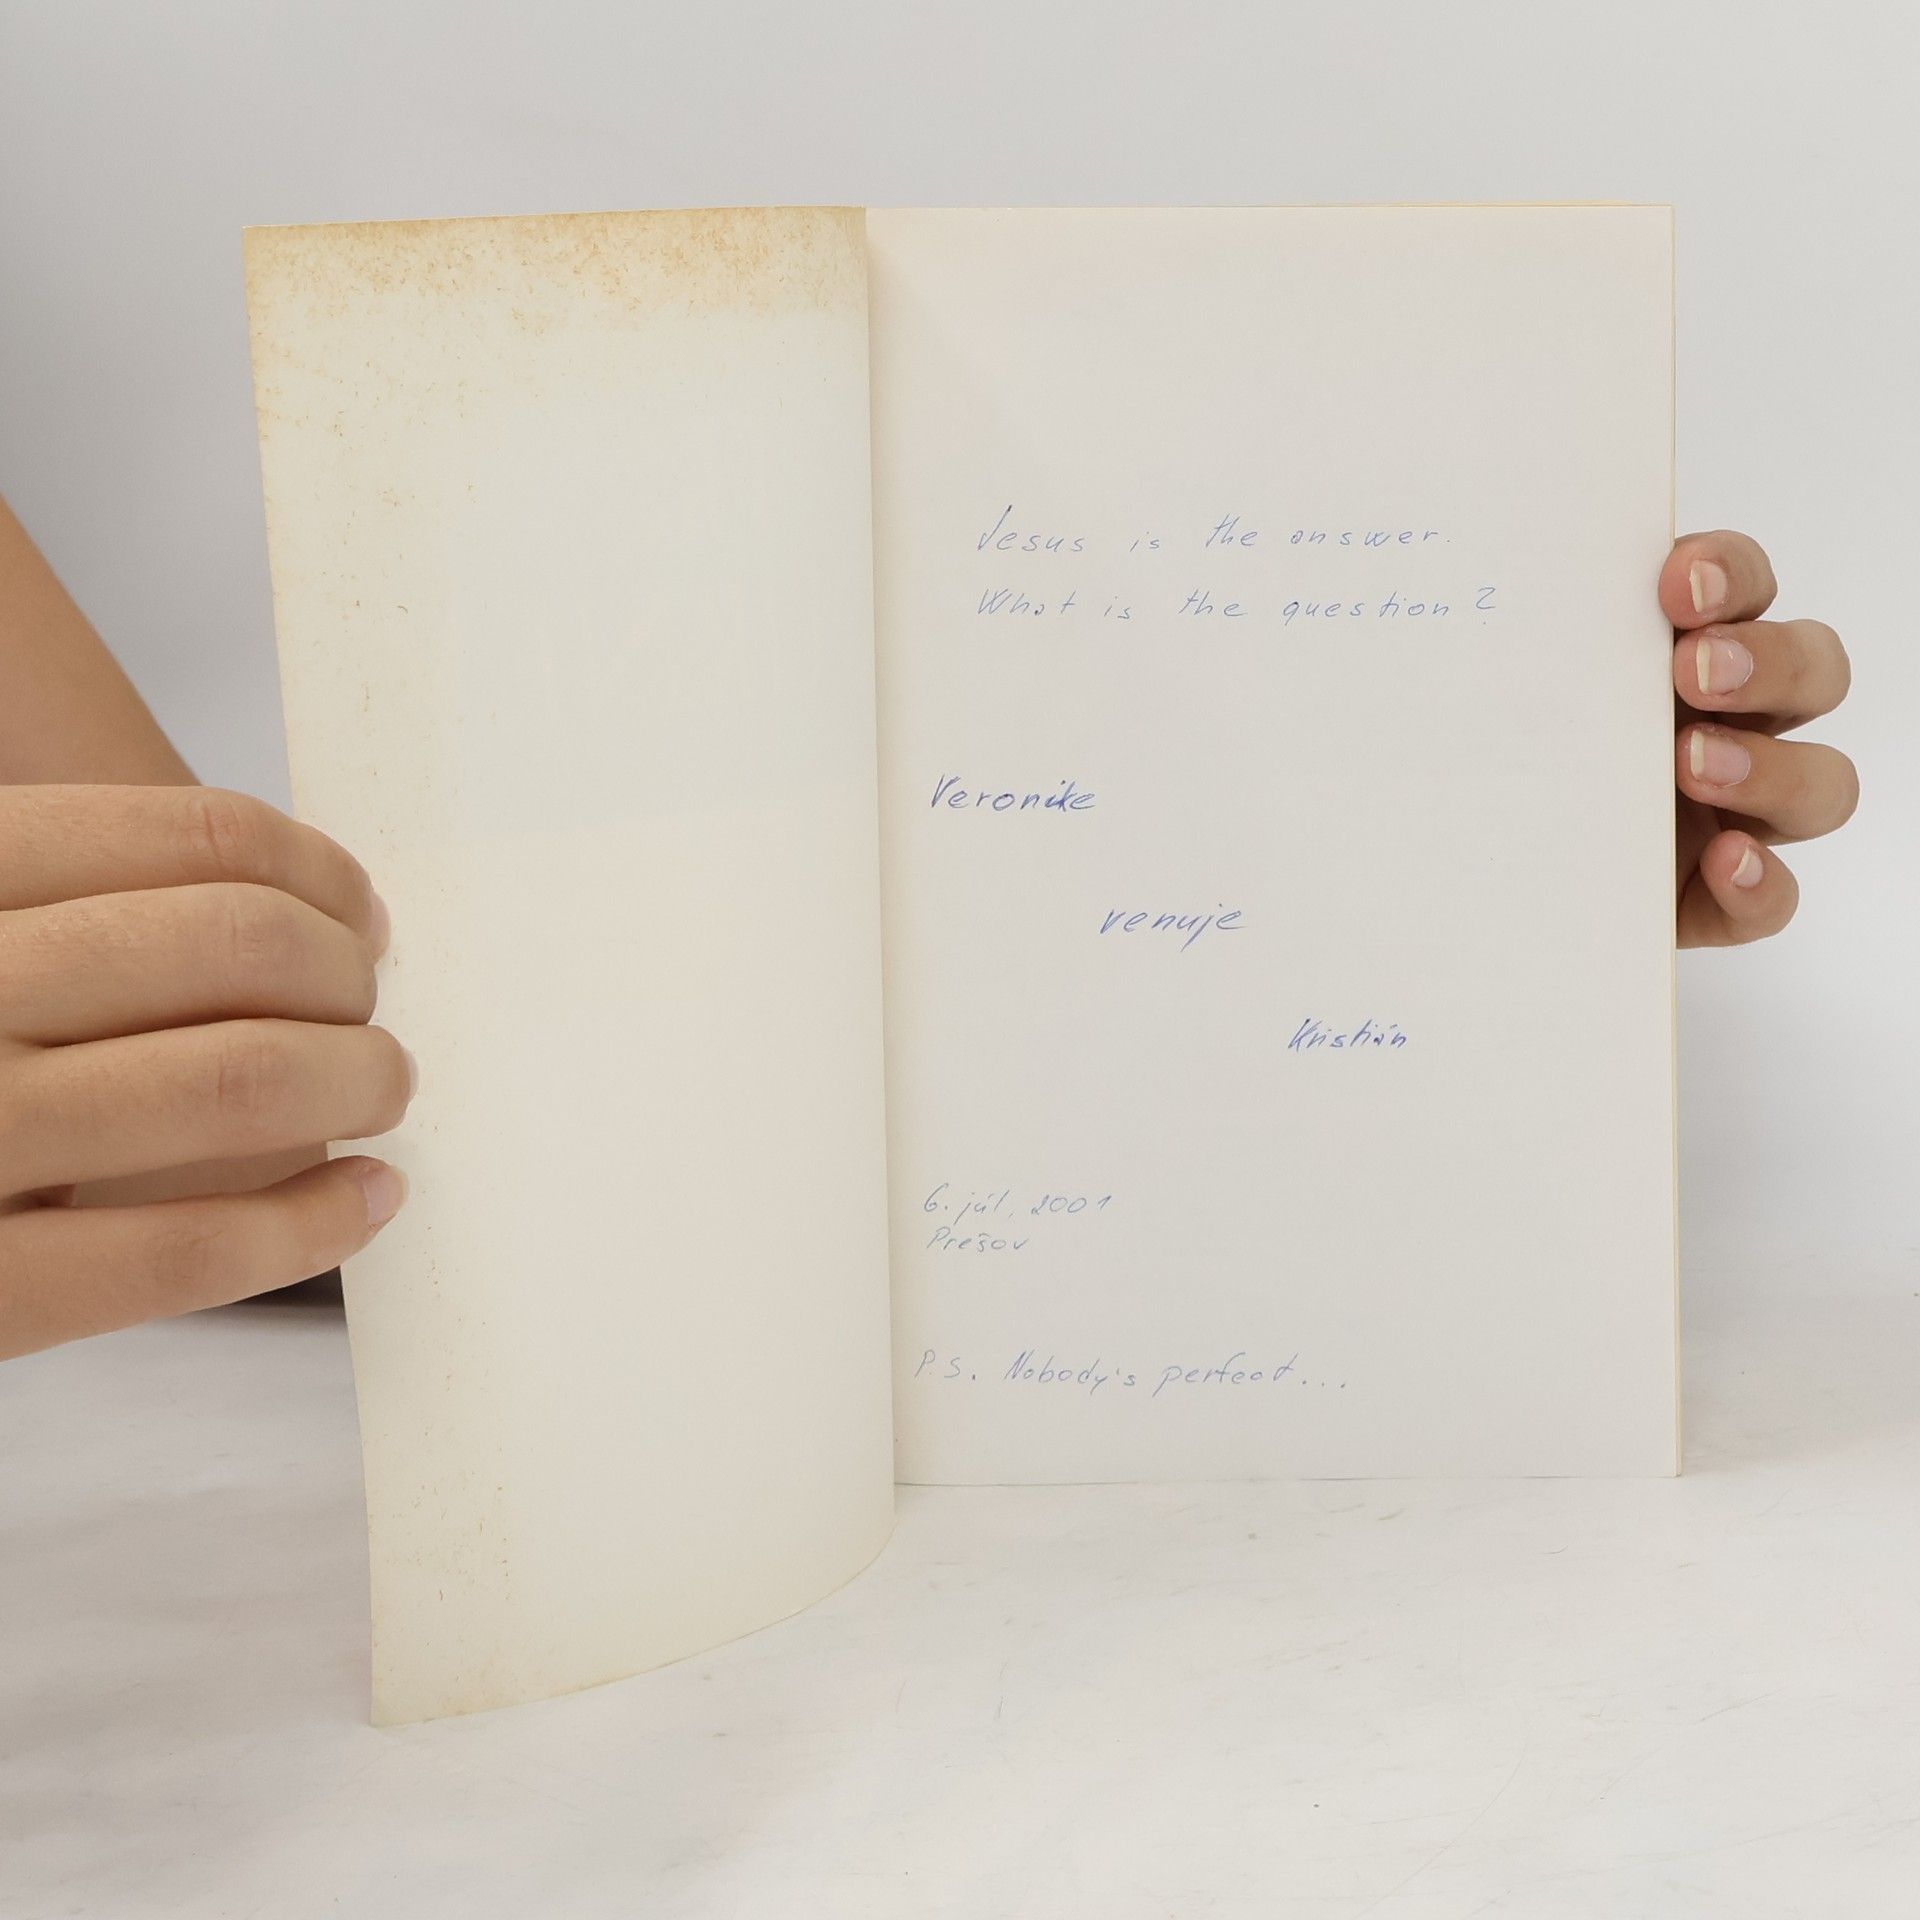 Jesus is the answer.
What is the question?
Veronike
venuje
Kristián
6. júl, 2001
Prešov
P.S. Nobody's perfect...